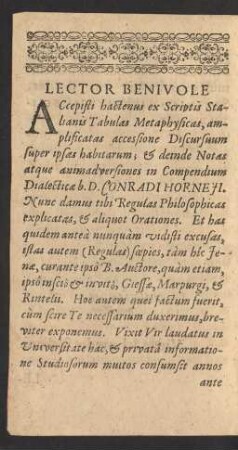 LECTOR BENIVOLE
ACcepisti hactenus ex Scriptis Sta-
lianis Tabulas Metaphysicas, am-
plificatas accessione Discursuum
super ipsas habitarum; & deinde Notas
atque animadversiones in Compendium
Dialecticæ b. D. CONRADI HORNEJI.
Nunc damus tibi Regulas Philosophicas
explicatas, & aliquot Orationes. Et has
quidem anteà nunquàm vidisti excusas,
istas autem (Regulas) sæpiùs, tàm hîc Je-
næ, curante ipsô B. Auctore, quàm etiam,
ipsô insciô & invitô, Giessæ, Marpurgi, &
Rintelii. Hoc autem quei factum fuerit,
cùm scire Te necessarium duxerimus, bre-
viter exponemus. Vixit Vir laudatus in
Universitate hac, & privatâ informatio-
ne Studiosorum multos consumsit annos
ante